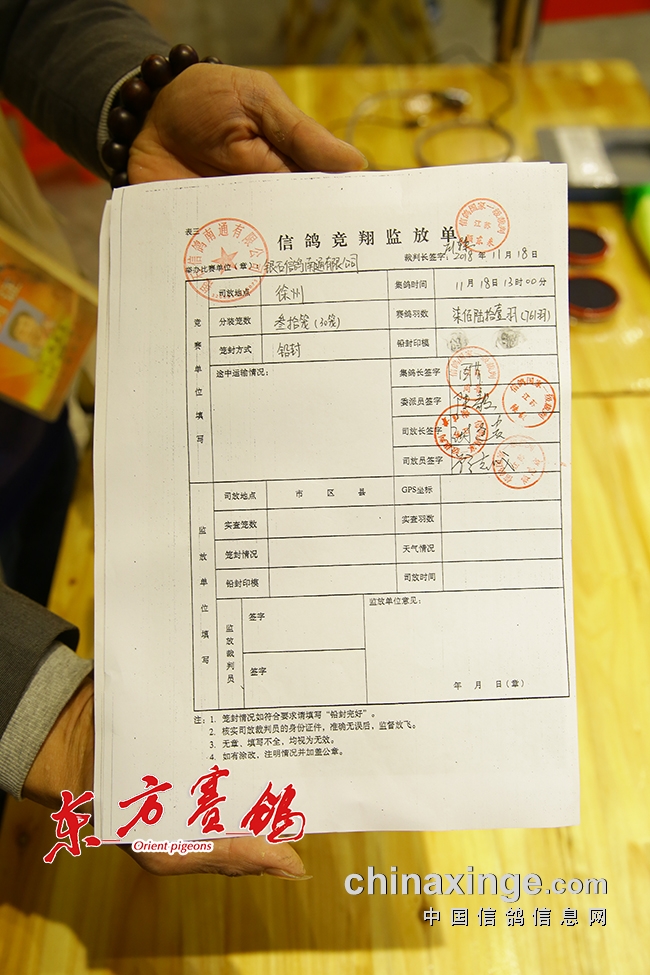 表三
信鸽竞翔监放单
举办比赛单位（章）银石信鸽南通有限公司 裁判长签字： 2018年11月18日
信鸽南通有限公司
竞赛单位填写
司放地点 徐州 集鸽时间 11月18日13时00分
分装笼数 叁拾笼(30笼) 赛鸽羽数 柒佰陆拾壹羽(761羽)
笼封方式 铅封 铅封印模
途中运输情况： 集鸽长签字
委派员签字
司放长签字
司放员签字
监放单位填写
司放地点 市 区 县 GPS坐标
实查笼数 实查羽数
笼封情况 天气情况
铅封印模 司放时间
监放裁判员 签字 监放单位意见：
签字
年 月 日（章）
注：1. 笼封情况如符合要求请填写“铅封完好”。
2. 核实司放裁判员的身份证件，准确无误后，监督放飞。
3. 无章、填写不全，均视为无效。
4. 如有涂改，注明情况并加盖公章。
东方赛鸽
Orient pigeons
chinaxinge.com
中国信鸽信息网